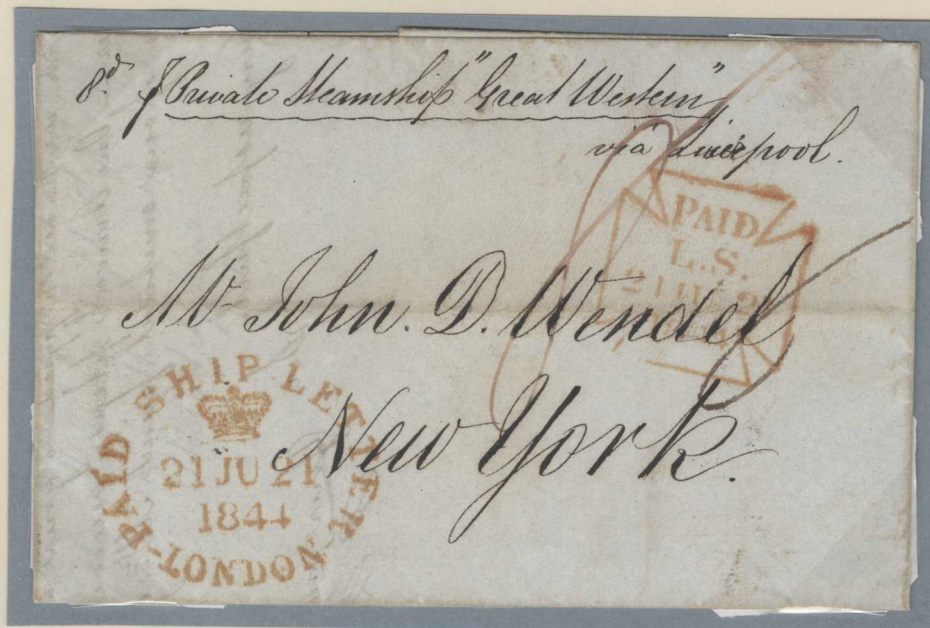 8d. p Private Steamship "Great Western"
via Liverpool.
PAID
L.S.
Mr John. D. Wendel
New York.
PAID SHIP LETTER
21 JU 21
1844
LONDON